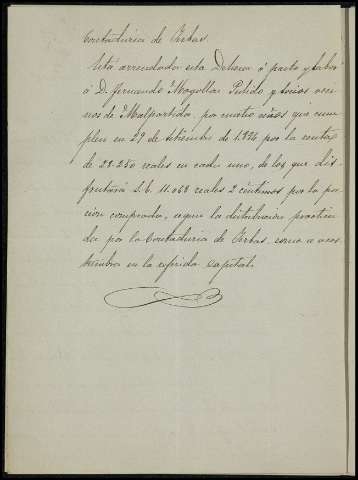 Contaduria de Yerbas
Está arrendada esta Dehesa á pasto y labor
á D. Fernando Mogollon Pulido y varios veci-
nos de Malpartida, por cuatro años que cum-
plen en 29 de Setiembre de 1.876 por la renta
de 22.250 reales en cada uno, de los que dis-
frutará S.E. 11.068 reales 2 céntimos por la por-
cion comprada, segun la distribucion practica-
da por la Contaduria de Yerbas, como á
en la referida capital.